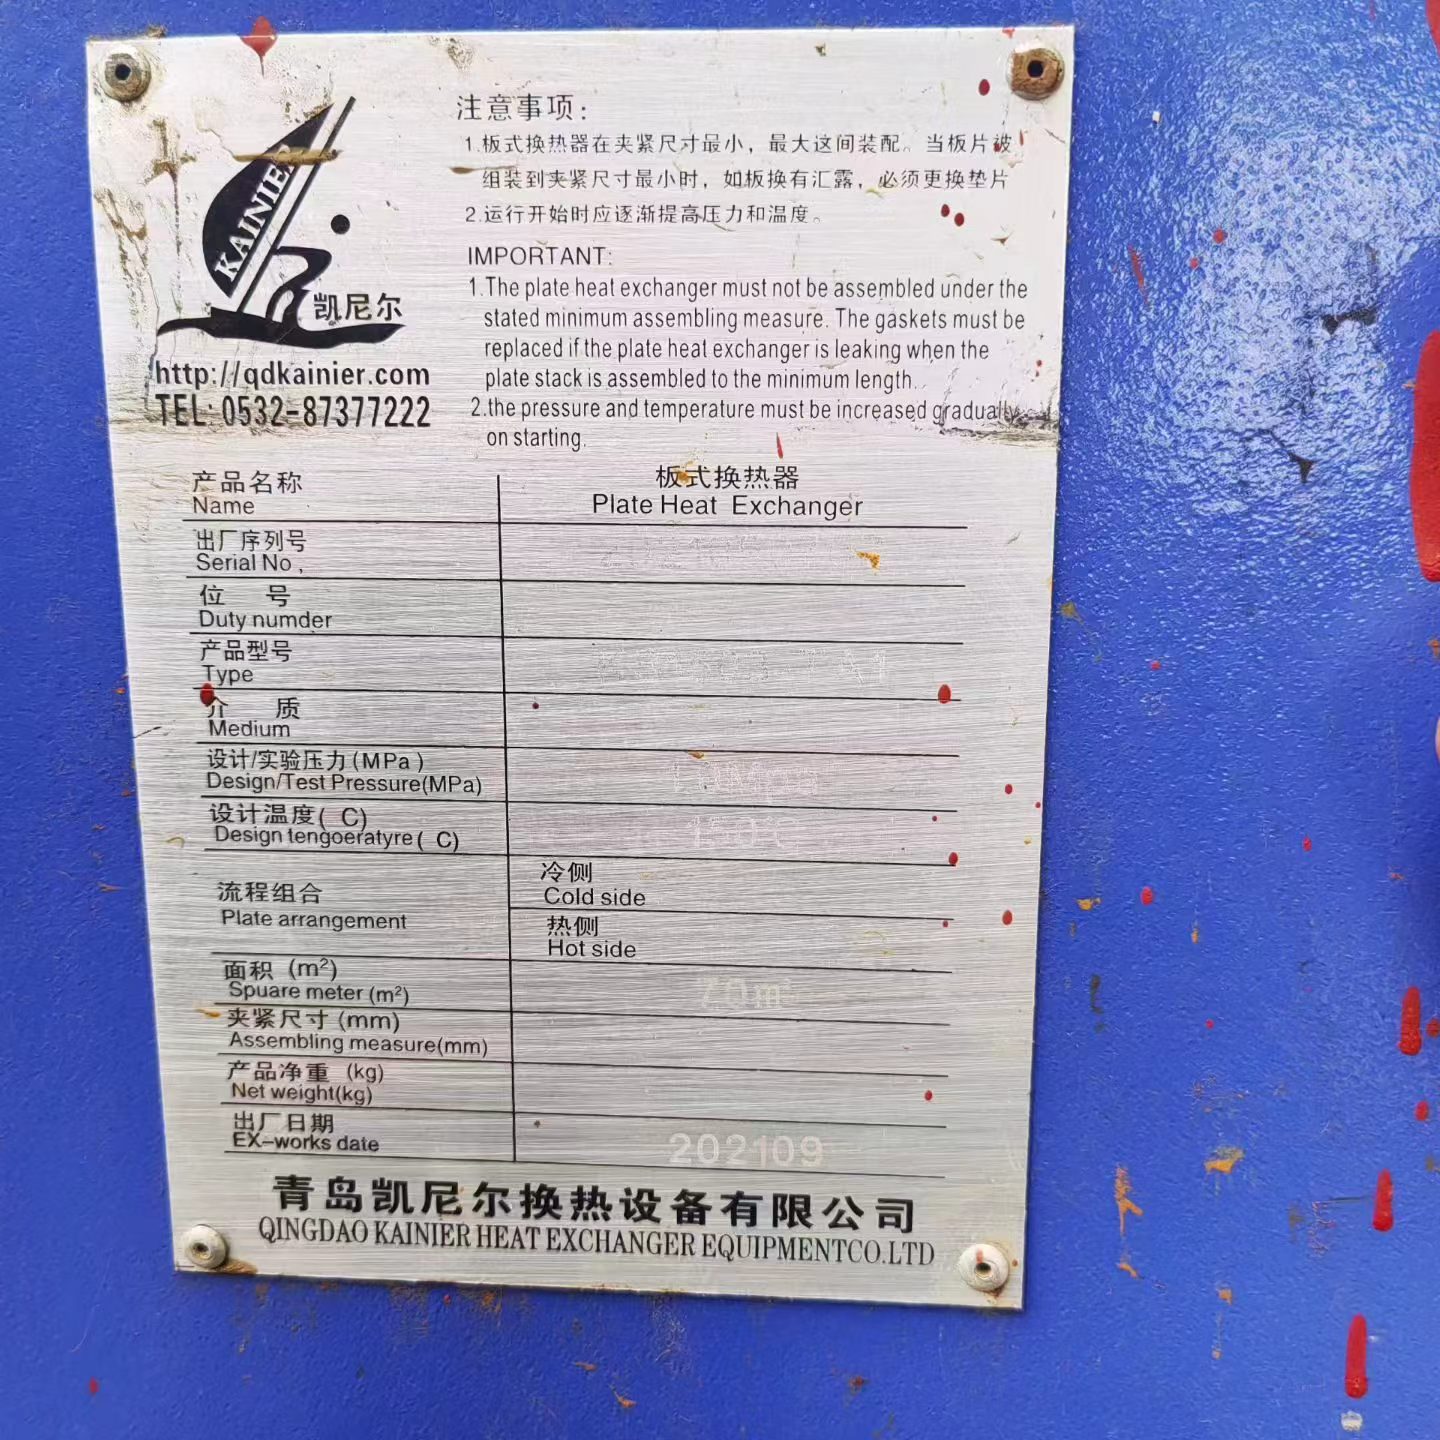 KAINIER
凯尼尔
http://qdkainier.com
TEL: 0532-87377222
注意事项:
1.板式换热器在夹紧尺寸最小，最大这间装配。当板片被
组装到夹紧尺寸最小时，如板换有汇露，必须更换垫片
2.运行开始时应逐渐提高压力和温度。
IMPORTANT:
1.The plate heat exchanger must not be assembled under the
stated minimum assembling measure. The gaskets must be
replaced if the plate heat exchanger is leaking when the
plate stack is assembled to the minimum length.
2.the pressure and temperature must be increased gradually
on starting.
产品名称 板式换热器
Name Plate Heat Exchanger
出厂序列号
Serial No ,
位 号
Duty numder
产品型号
Type
介 质
Medium
设计/实验压力(MPa)
Design/Test Pressure(MPa)
设计温度( C) 150℃
Design tengoeratyre( C)
流程组合
Plate arrangement
冷侧
Cold side
热侧
Hot side
面积 (m²) 70m²
Spuare meter (m²)
夹紧尺寸 (mm)
Assembling measure(mm)
产品净重 (kg)
Net weight(kg)
出厂日期 202109
EX-works date
青岛凯尼尔换热设备有限公司
QINGDAO KAINIER HEAT EXCHANGER EQUIPMENTCO.LTD